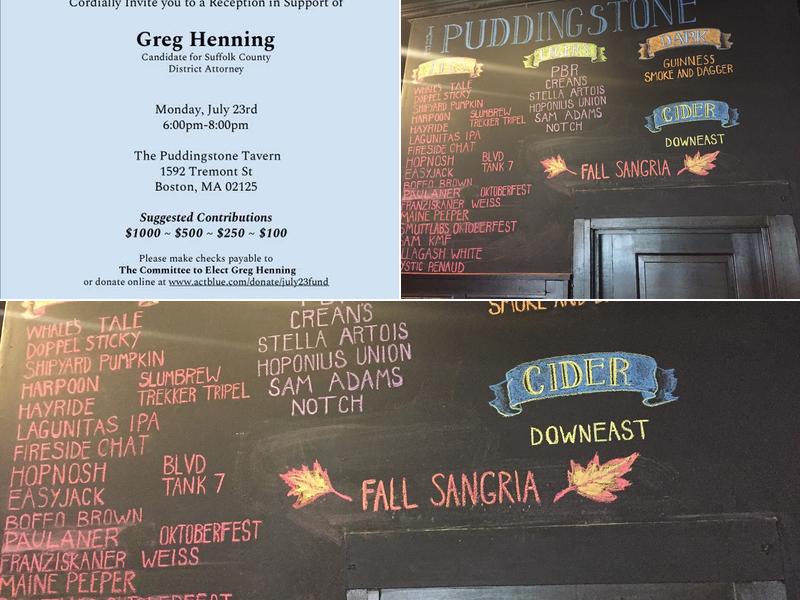 Cordially Invite you to a Reception in Support of
Greg Henning
Candidate for Suffolk County
District Attorney
Monday, July 23rd
6:00pm-8:00pm
The Puddingstone Tavern
1592 Tremont St
Boston, MA 02125
Suggested Contributions
$1000 ~ $500 ~ $250 ~ $100
Please make checks payable to
The Committee to Elect Greg Henning
or donate online at www.actblue.com/donate/july23fund
PUDDINGSTONE
WHALE'S TALE
DOPPEL STICKY
SHIPYARD PUMPKIN
HARPOON SLUMBREW
HAYRIDE TREKKER TRIPEL
LAGUNITAS IPA
FIRESIDE CHAT
HOPNOSH BLVD
EASYJACK TANK 7
BOFFO BROWN
PAULANER OKTOBERFEST
FRANZISKANER WEISS
MAINE PEEPER
SMUTTLABS OKTOBERFEST
SAM KMF
ALLAGASH WHITE
MYSTIC RENAUD
LAGERS
PBR
CREAN'S
STELLA ARTOIS
HOPONIUS UNION
SAM ADAMS
NOTCH
DARK
GUINNESS
SMOKE AND DAGGER
CIDER
DOWNEAST
FALL SANGRIA
WHALE'S TALE
DOPPEL STICKY
SHIPYARD PUMPKIN
HARPOON SLUMBREW
HAYRIDE TREKKER TRIPEL
LAGUNITAS IPA
FIRESIDE CHAT
HOPNOSH BLVD
EASYJACK TANK 7
BOFFO BROWN
PAULANER OKTOBERFEST
FRANZISKANER WEISS
MAINE PEEPER
PBR
CREAN'S
STELLA ARTOIS
HOPONIUS UNION
SAM ADAMS
NOTCH
SMOKE AND
CIDER
DOWNEAST
FALL SANGRIA